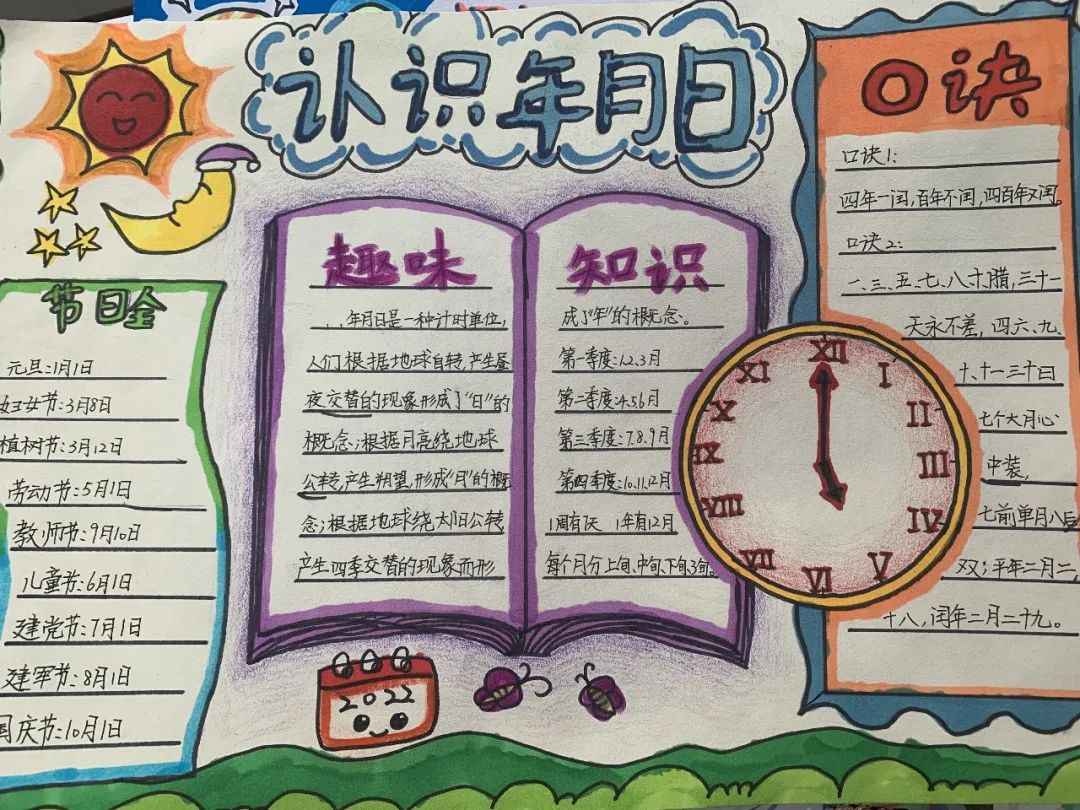 认识年月日
节日全
元旦:1月1日
妇女节:3月8日
植树节:3月12日
劳动节:5月1日
教师节:9月10日
儿童节:6月1日
建党节:7月1日
建军节:8月1日
国庆节:10月1日
趣味
年月日是一种计时单位,
人们根据地球自转,产生昼
夜交替的现象形成了“日”的
概念;根据月亮绕地球
公转,产生朔望,形成“月”的概
念;根据地球绕太阳公转
产生四季交替的现象而形
知识
成了“年”的概念。
第一季度:1.2.3月
第二季度:4.5.6月
第三季度:7.8.9月
第四季度:10.11.12月
1周有7天 1年有12月
每个月分上旬、中旬、下旬、3旬。
2022
XII
I
II
III
IV
V
VI
VII
VIII
IX
X
XI
口诀
口诀1:
四年一闰,百年不闰,四百年又闰。
口诀2:
一、三、五、七、八、十、腊,三十一
天永不差,四、六、九、
十、十一三十曰
七个大月心
中装,
七前单月八后
双;平年二月二
十八,闰年二月二十九。